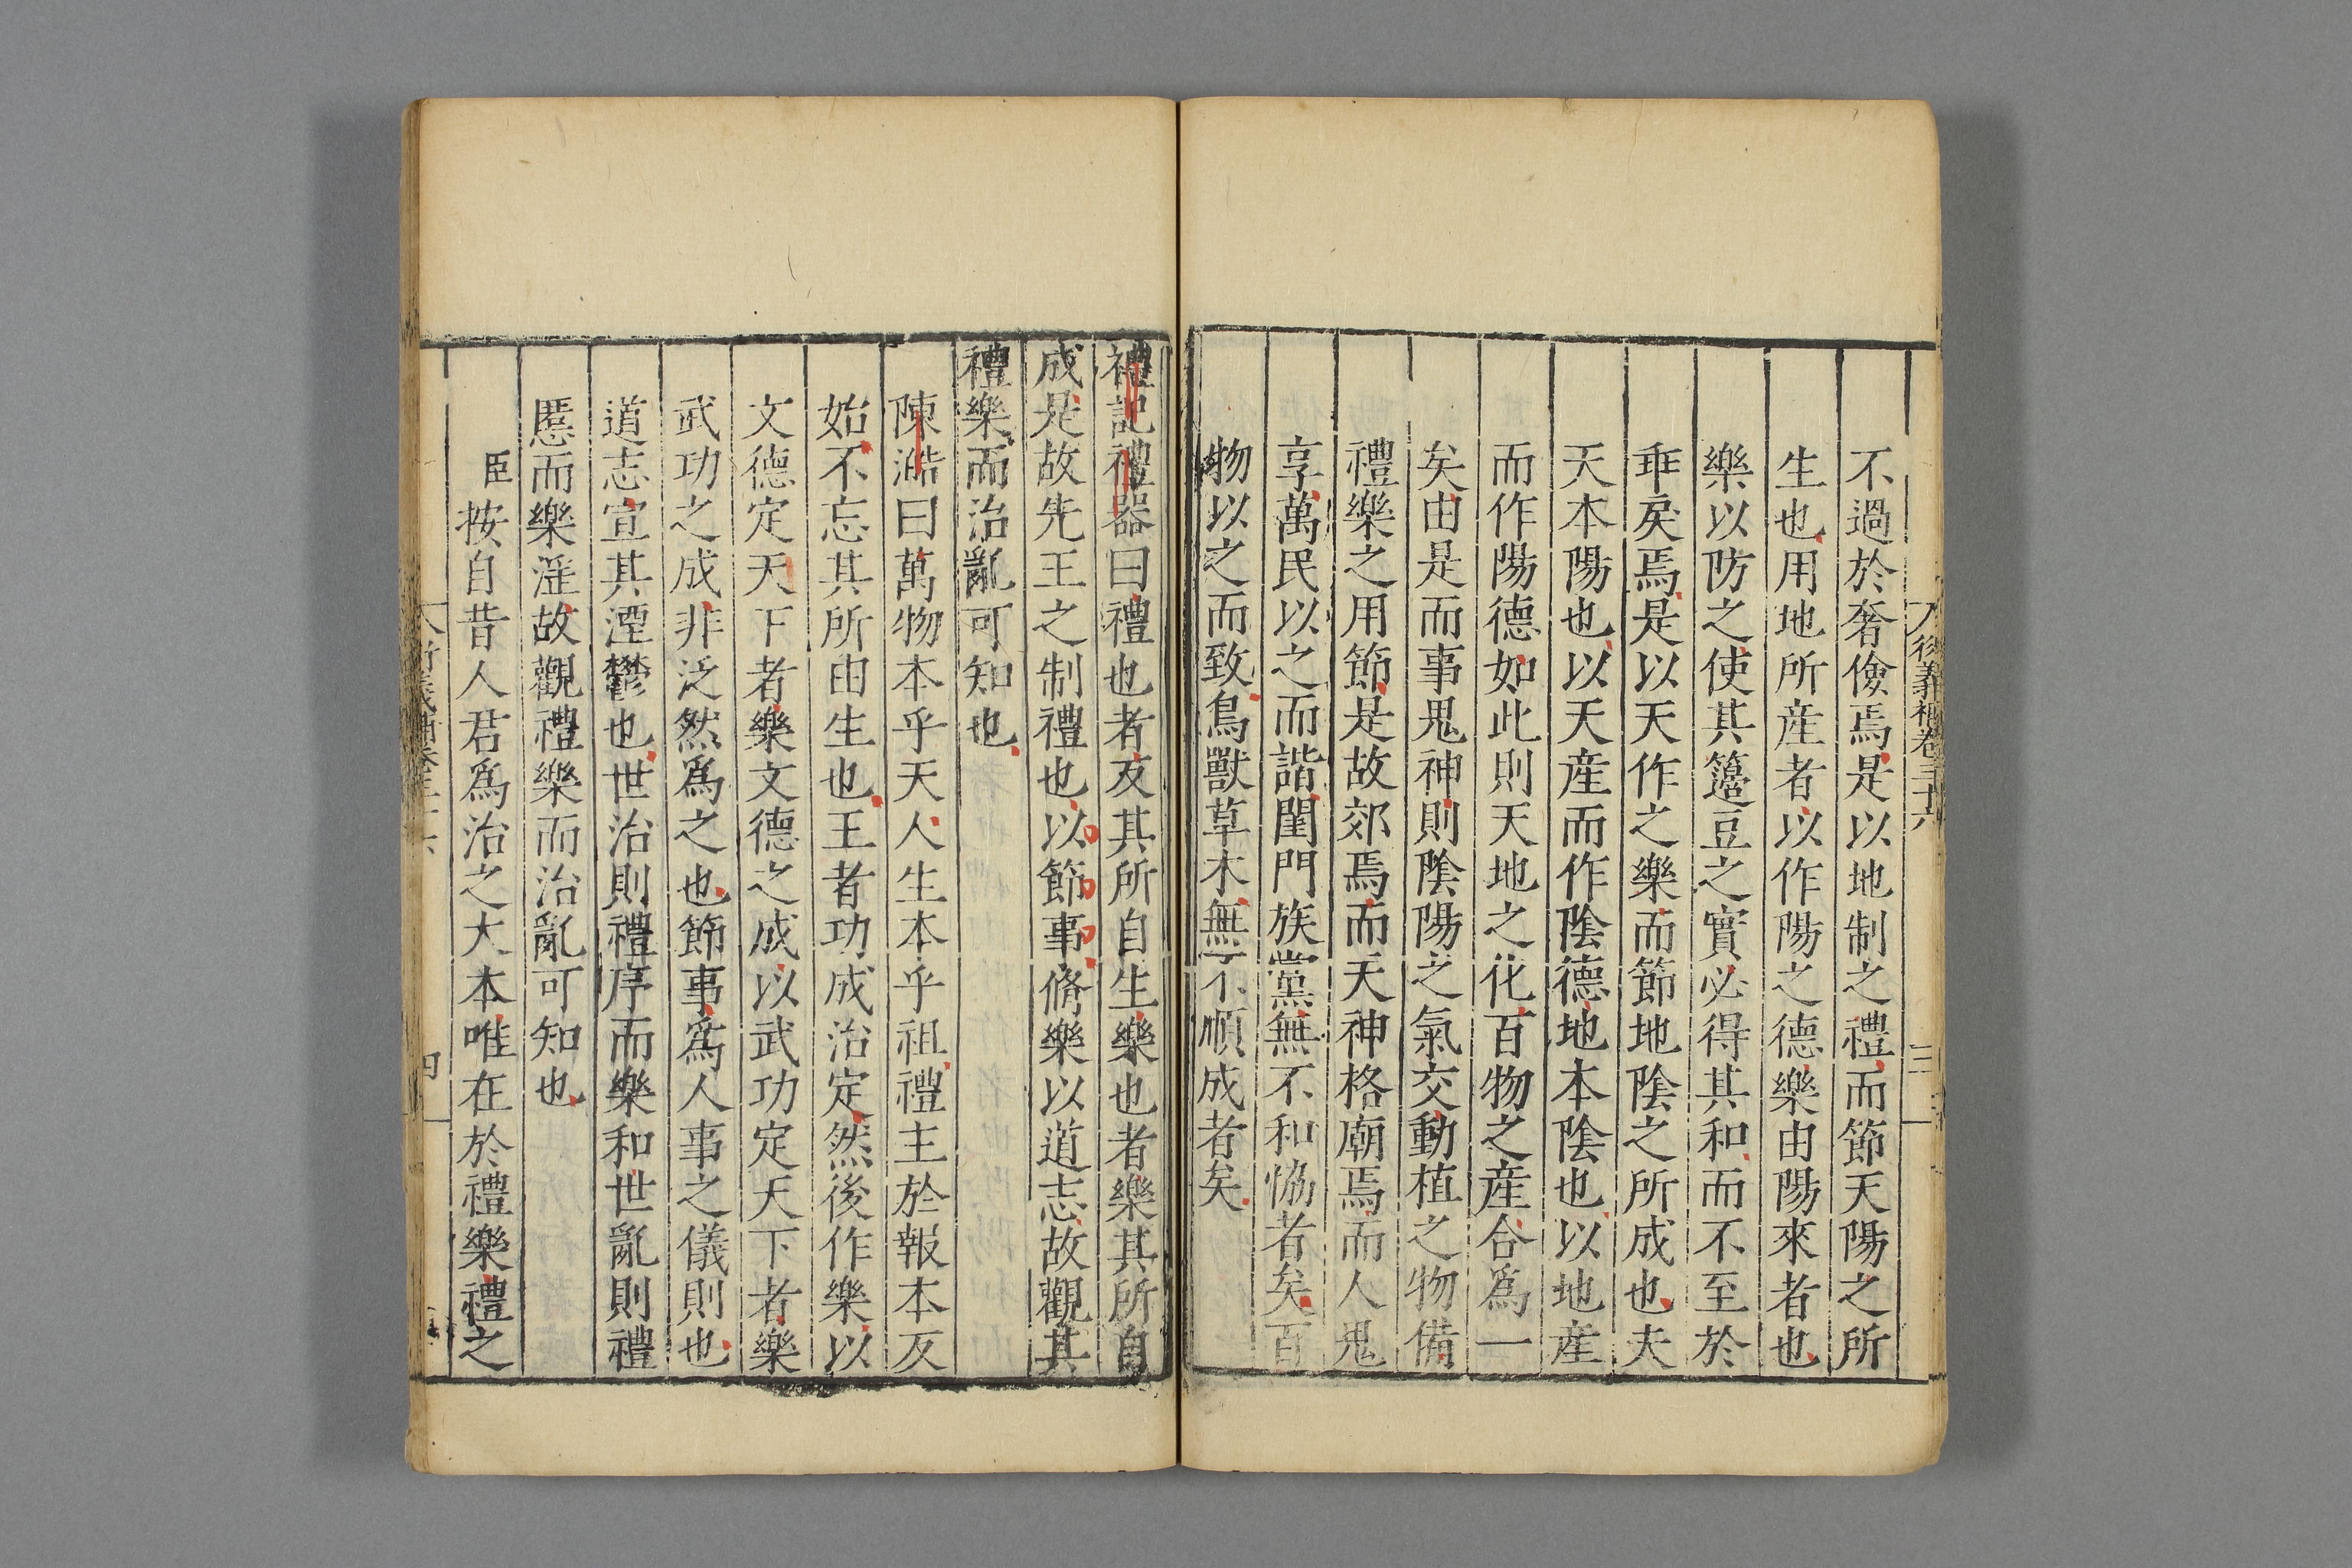 不過於奢儉焉是以地制之禮而節天陽之所
生也用地所産者以作陽之德樂由陽來者也
樂以防之使其籩豆之實必得其和而不至於
乖戾焉是以天作之樂而節地陰之所成也夫
天本陽也以天産而作陰德地本陰也以地産
而作陽德如此則天地之化百物之産合爲一
矣由是而事鬼神則陰陽之氣交動植之物備
禮樂之用節是故郊焉而天神格廟焉而人鬼
享萬民以之而諧閨門族黨無不和協者矣百
物以之而致鳥獸草木無不順成者矣
禮記禮器曰禮也者反其所自生樂也者樂其所自
成是故先王之制禮也以節事脩樂以道志故觀其
禮樂而治亂可知也
陳澔曰萬物本乎天人生本乎祖禮主於報本反
始不忘其所由生也王者功成治定然後作樂以
文德定天下者樂文德之成以武功定天下者樂
武功之成非泛然爲之也節事爲人事之儀則也
道志宣其湮鬱也世治則禮序而樂和世亂則禮
慝而樂淫故觀禮樂而治亂可知也
臣按自昔人君爲治之大本唯在於禮樂禮之
四